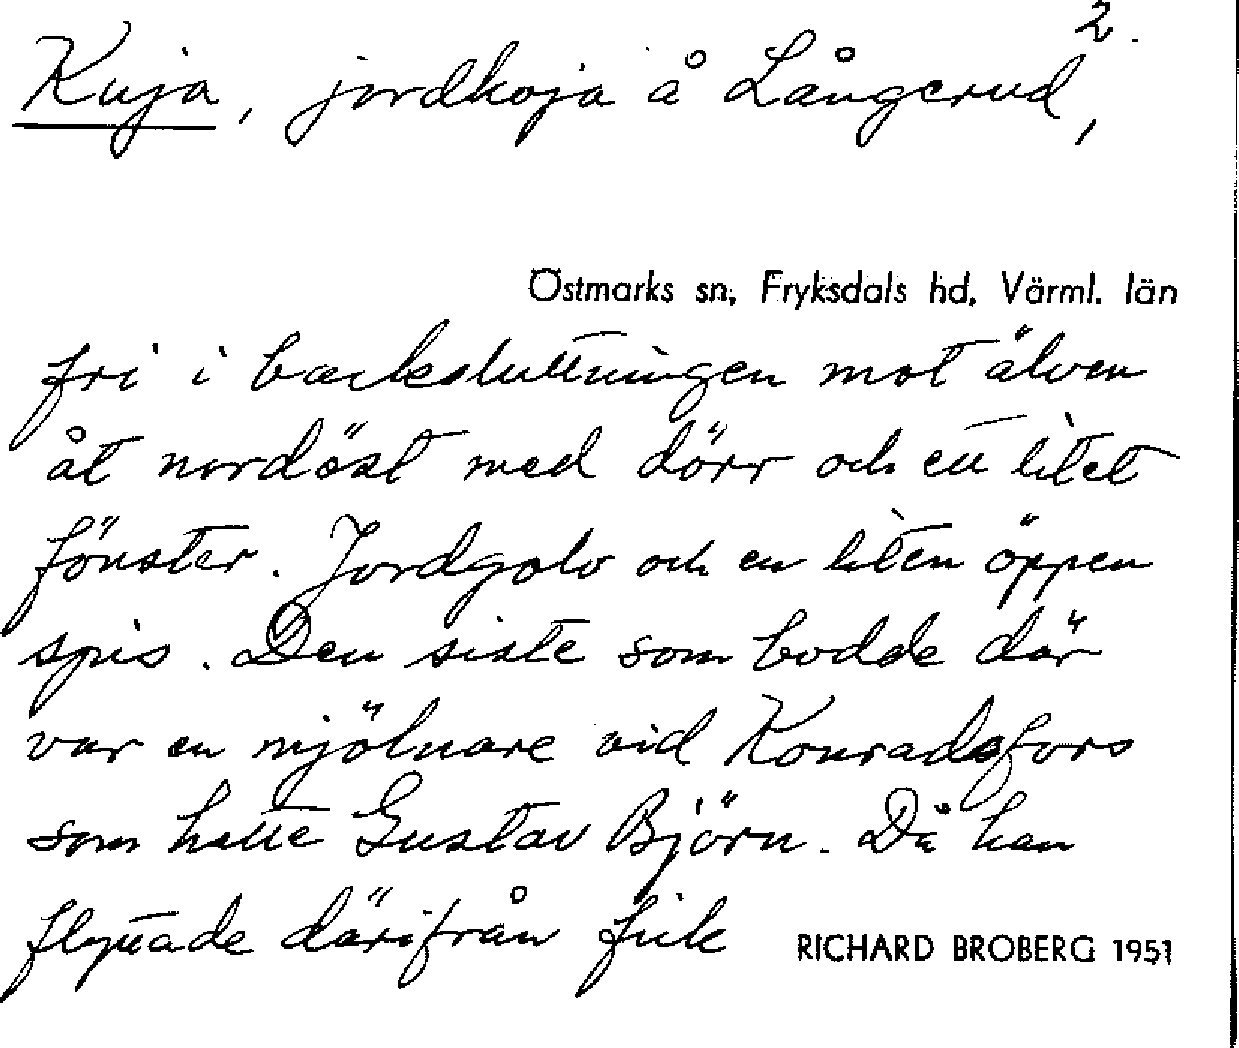 2.
Kuja, jordkoja å Långerud,
Östmarks sn, Fryksdals hd, Värml. län
fri i backsluttningen mot älven
åt nordöst med dörr och ett litet
fönster. Jordgolv och en liten öppen
spis. Den siste som bodde där
var en mjölnare vid Konradsfors
som hette Gustav Björn. Då han
flyttade därifrån fick
RICHARD BROBERG 1951